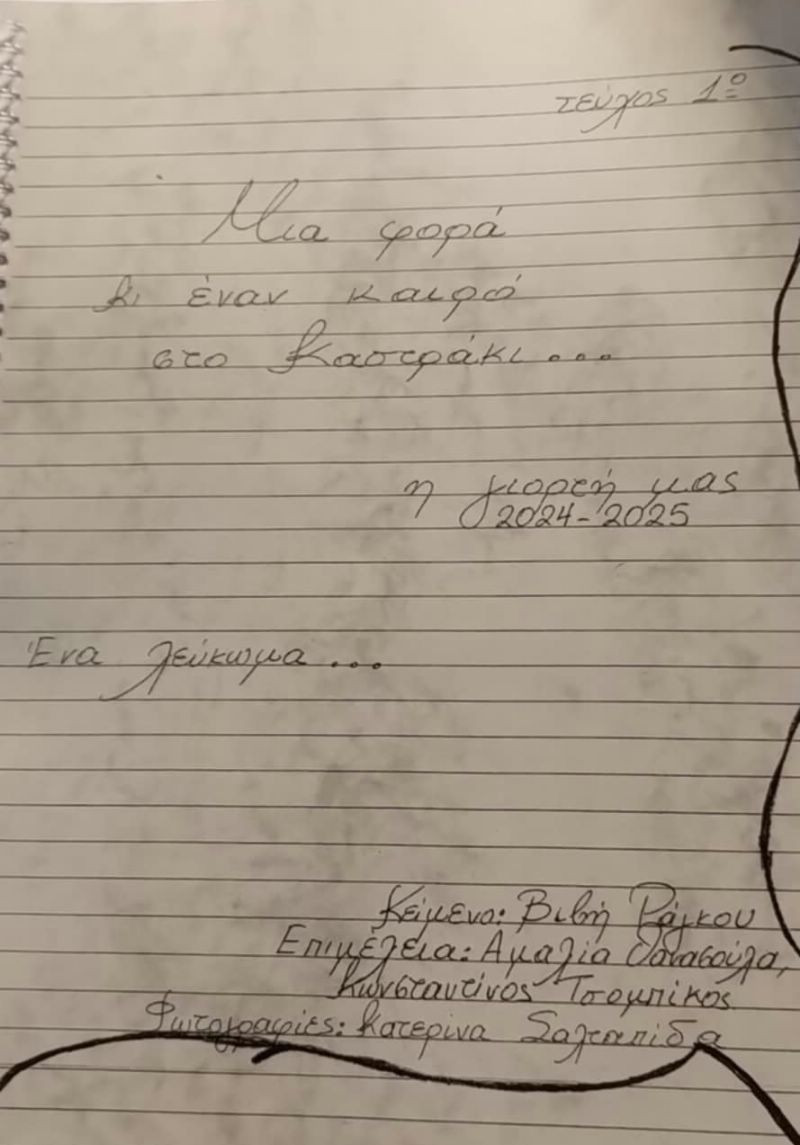 τεύχος 1º
Μια φορά
κι έναν καιρό
στο Καστράκι...
η γιορτή μας
2024-2025
Ένα λεύκωμα...
Κείμενο: Βιβή Ράγκου
Επιμέλεια: Αμαλία
Κωνσταντίνος Τσομπίκος
Φωτογραφίες: Κατερίνα